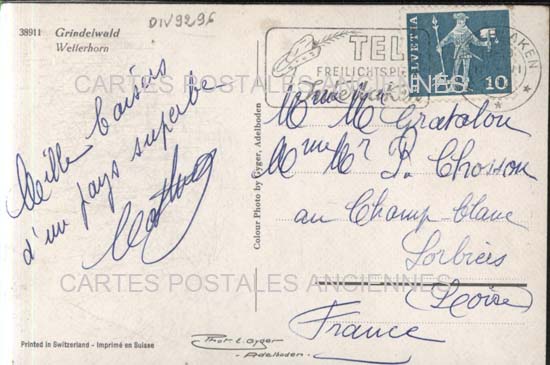 DIV9296
38911 Grindelwald
Wetterhorn
Mille baisers
d'un pays superbe
TELL
FREILICHTSPIELE
Interlaken
HELVETIA
10
CARTES POSTALES ANCIENNES
Colour Photo by Gyger, Adelboden
Mme M Gratalou
Mme Mr P. Chosson
au Champ blanc
Sorbiers
(Loire)
France
CARTES POSTALES ANCIENNES
Printed in Switzerland - Imprimé en Suisse
Phot. E. Gyger
- Adelboden -